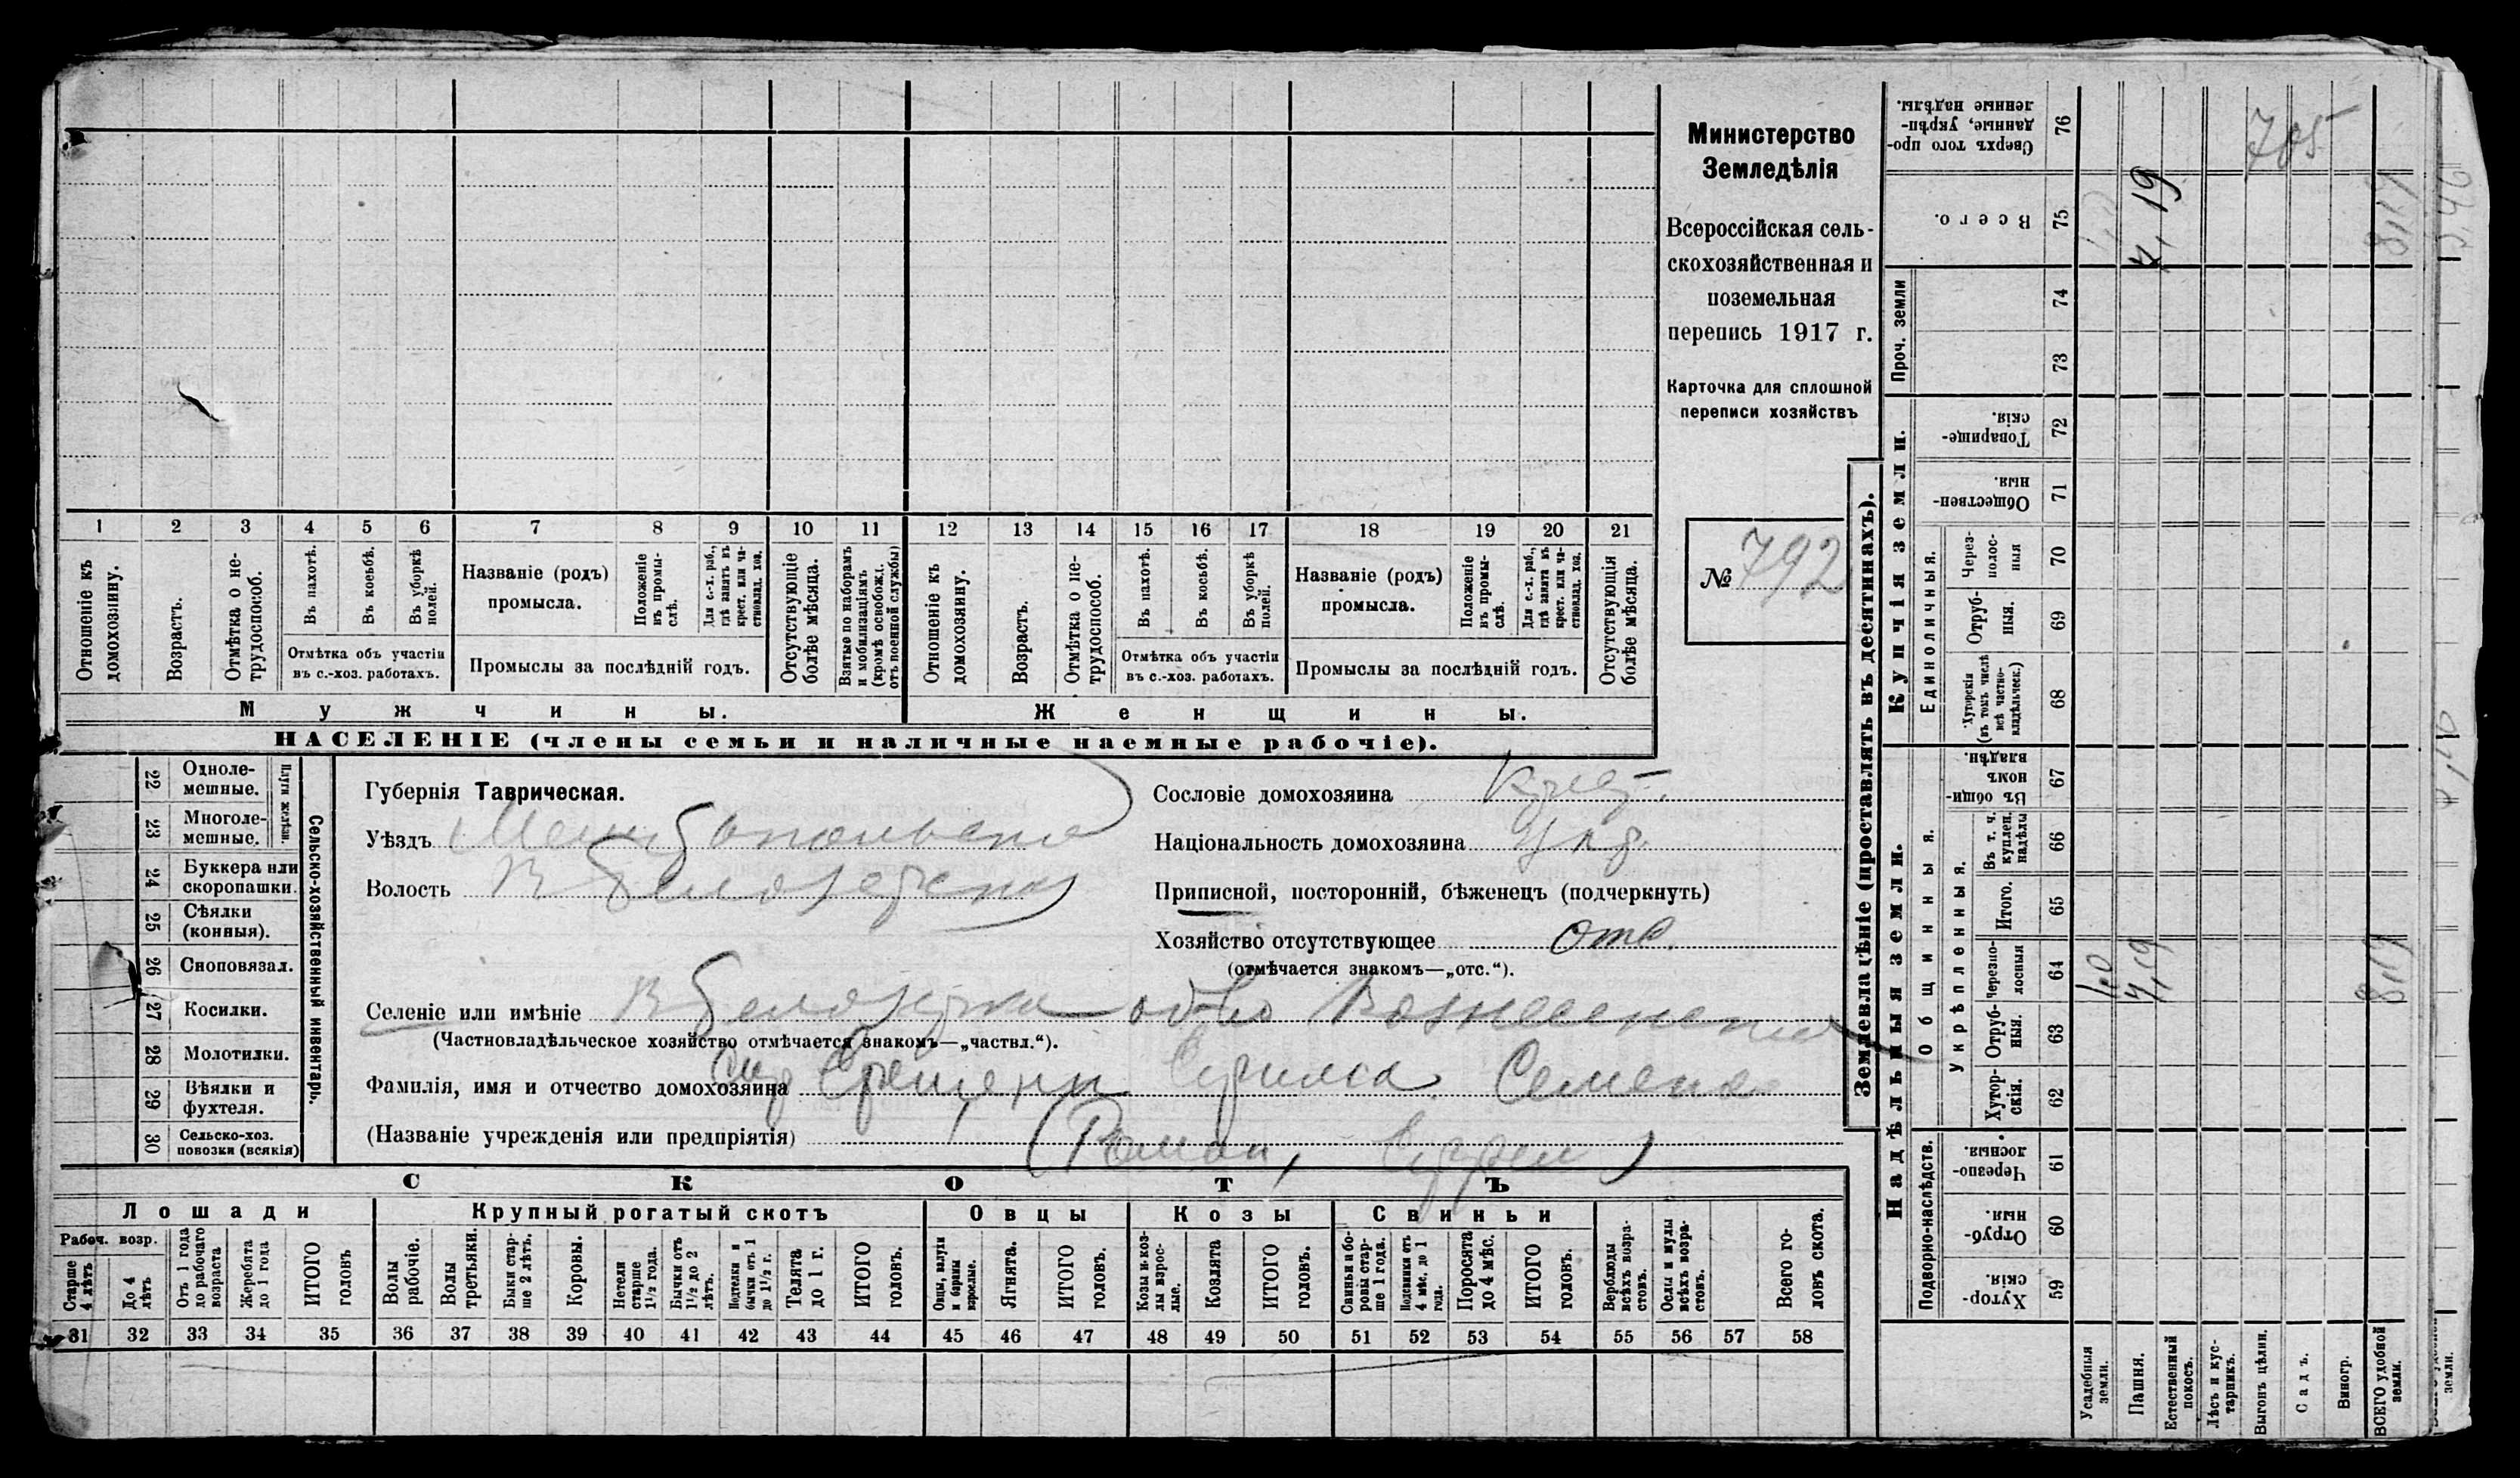 Министерство
Земледѣлія
Всероссійская сель-
скохозяйственная и
поземельная
перепись 1917 г.
Карточка для сплошной
переписи хозяйствъ
№ 792
1 2 3 4 5 6 7 8 9 10 11 12 13 14 15 16 17 18 19 20 21
Отношеніе къ домохозяину.
Возрастъ.
Отмѣтка о не-
трудоспособ.
Въ пахотѣ.
Въ косьбѣ.
Въ уборкѣ полей.
Отмѣтка объ участіи
въ с.-хоз. работахъ.
Названіе (родъ)
промысла.
Положеніе въ промы-
слѣ.
Для с.-х. раб.,
гдѣ занятъ въ
крест. или ча-
стновлад. хоз.
Промыслы за послѣдній годъ.
Отсутствующіе
болѣе мѣсяца.
Взятые по наборамъ
и мобилизаціямъ
(кромѣ освобожд.
отъ военной службы)
Отношеніе къ
домохозяину.
Возрастъ.
Отмѣтка о не-
трудоспособ.
Въ пахотѣ.
Въ косьбѣ.
Въ уборкѣ
полей.
Отмѣтка объ участіи
въ с.-хоз. работахъ.
Названіе (родъ)
промысла.
Положеніе
въ промы-
слѣ.
Для с.-х. раб.,
гдѣ занята въ
крест. или ча-
стновлад. хоз.
Промыслы за послѣдній годъ.
Отсутствующія
болѣе мѣсяца.
Мужчины.
Женщины.
НАСЕЛЕНІЕ (члены семьи и наличные наемные рабочіе).
Сельско-хозяйственный инвентарь.
Плуги желѣзн.
22 Одноле-
мешные.
23 Многоле-
мешные.
24 Буккера или
скоропашки.
25 Сѣялки
(конныя).
26 Сноповязал.
27 Косилки.
28 Молотилки.
29 Вѣялки и
фухтеля.
30 Сельско-хоз.
повозки (всякія)
Губернія Таврическая.
Уѣздъ
Волость
Сословіе домохозяина Крест.
Національность домохозяина Укр.
Приписной, посторонній, бѣженецъ (подчеркнуть)
Хозяйство отсутствующее отс.
(отмѣчается знакомъ—„отс.“).
Селеніе или имѣніе В Белозерка об-во
(Частновладѣльческое хозяйство отмѣчается знакомъ—„частвл.“).
Фамилія, имя и отчество домохозяина
(Названіе учрежденія или предпріятія) (Роман,
СКОТЪ
Лошади
Рабоч. возр.
Старше
4 лѣтъ
До 4
лѣтъ
Отъ 1 года
до рабочаго
возраста
Жеребята
до 1 года
ИТОГО
головъ
Крупный рогатый скотъ
Волы
рабочіе.
Волы
третьяки.
Быки стар-
ше 2 лѣтъ.
Коровы.
Нетели
старше
1½ года.
Бычки отъ
1½ до 2
лѣтъ.
Подтелки и
бычки отъ 1
до 1½ г.
Телята
до 1 г.
ИТОГО
головъ.
Овцы
Овцы, валухи
и бараны
взрослые.
Ягнята.
ИТОГО
головъ.
Козы
Козы и коз-
лы взрос-
лые.
Козлята
ИТОГО
головъ.
Свиньи
Свиньи и бо-
ровы стар-
ше 1 года.
Подсвинки отъ
4 мѣс. до 1
года.
Поросята
до 4 мѣс.
ИТОГО
головъ.
Верблюды
всѣхъ возра-
стовъ.
Ослы и мулы
всѣхъ возра-
стовъ.
Всего го-
ловъ скота.
31 32 33 34 35 36 37 38 39 40 41 42 43 44 45 46 47 48 49 50 51 52 53 54 55 56 57 58
Землевладѣніе (проставлять въ десятинахъ).
Надѣльныя земли.
Подворно-наслѣдств.
Хутор-
скія. 59
Отруб-
ныя. 60
Черезпо-
лосныя. 61
Общинныя.
Укрѣпленныя.
Хутор-
скія. 62
Отруб-
ныя. 63
Черезпо-
лосныя 64
1,0
7,19
8,19
Итого. 65
Въ т. ч.
куплен.
надѣлы 66
Въ общи-
номъ
владѣн. 67
Купчія земли.
Единоличныя.
Хуторскія
(въ томъ числѣ
всѣ частно-
владѣльческ.) 68
Отруб-
ныя. 69
Через-
полос-
ныя 70
Обществен-
ныя. 71
Товарище-
скія. 72
Проч. земли
73
74
Всего. 75
1,0
7,19
8,19
Сверхъ того про-
данные, укрѣп-
ленные надѣлы. 76
705
Усадебныя
земли.
Пашня.
Естественный
покосъ.
Лѣсъ и кус-
тарникъ.
Выгонъ цѣлин.
Садъ.
Виногр.
ВСЕГО удобной
земли.
земли.